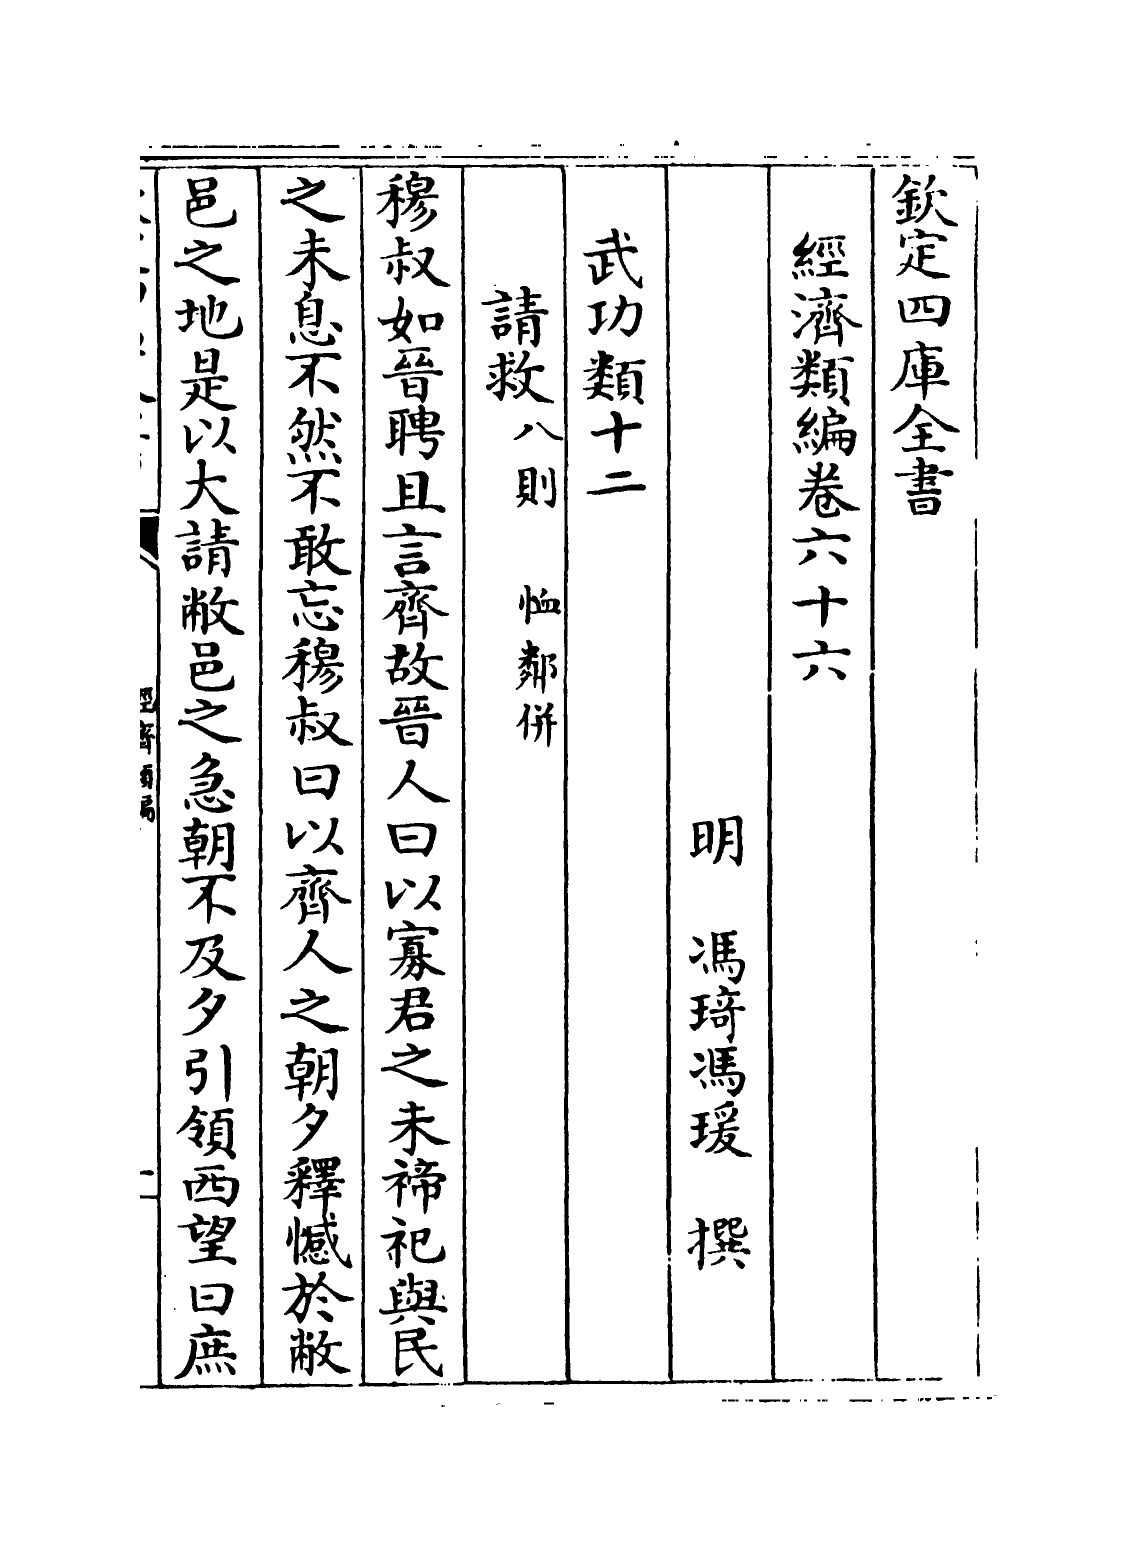 欽定四庫全書
經濟類編卷六十六
明 馮琦馮瑗 撰
武功類十二
請救八則 恤鄰併
穆叔如晉聘且言齊故晉人曰以寡君之未禘祀與民
之未息不然不敢忘穆叔曰以齊人之朝夕釋憾於敝
邑之地是以大請敝邑之急朝不及夕引領西望曰庶